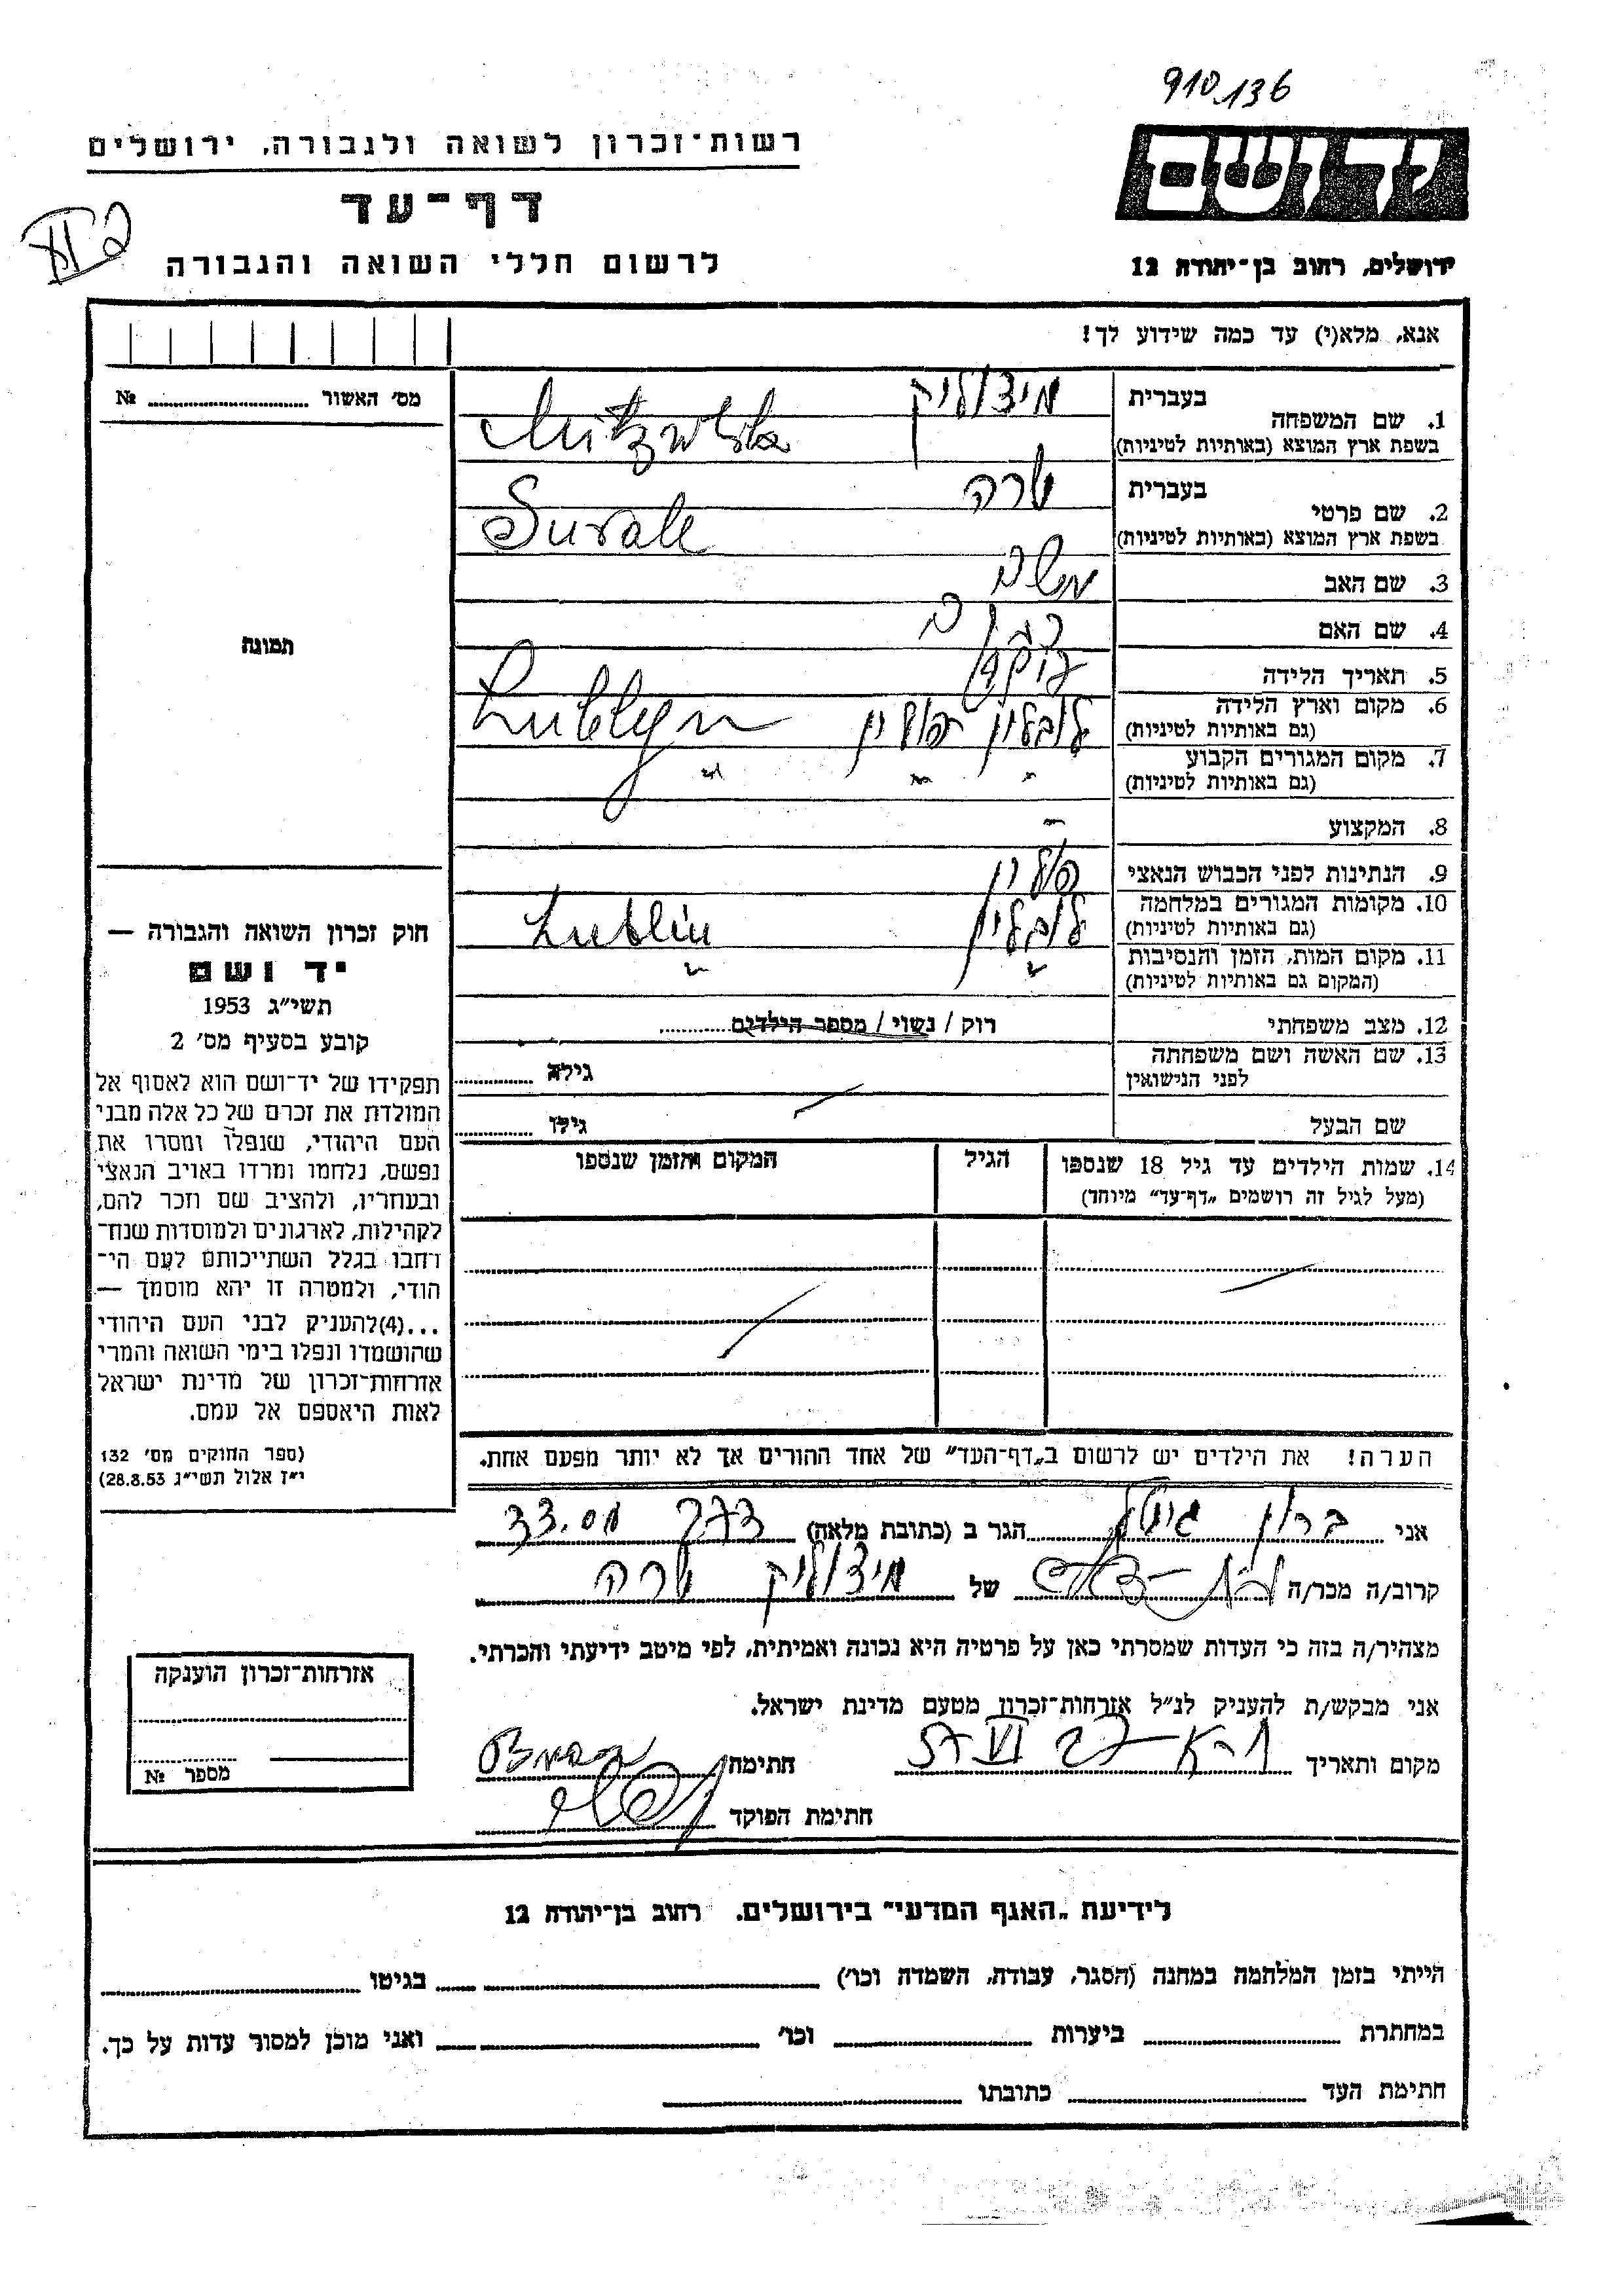 910.136
יד ושם
ירושלים, רחוב בן-יהודה 12
רשות-זכרון לשואה ולגבורה, ירושלים
דף-עד
לרשום חללי השואה והגבורה
אנא, מלא(י) עד כמה שידוע לך!
מס' האשור № 
1. שם המשפחה
בעברית
בשפת ארץ המוצא (באותיות לטיניות)
2. שם פרטי
בעברית שרה
בשפת ארץ המוצא (באותיות לטיניות) Surale
3. שם האב משה
4. שם האם
5. תאריך הלידה
6. מקום וארץ הלידה לובלין פולין Lubllyn
(גם באותיות לטיניות)
7. מקום המגורים הקבוע " " "
(גם באותיות לטיניות)
8. המקצוע -
9. הנתינות לפני הכבוש הנאצי פולין
10. מקומות המגורים במלחמה לובלין Lublin
(גם באותיות לטיניות)
11. מקום המות, הזמן והנסיבות " "
(המקום גם באותיות לטיניות)
12. מצב משפחתי רוק / נשוי / מספר הילדים
13. שם האשה ושם משפחתה גילה
לפני הנישואין
שם הבעל גילו
14. שמות הילדים עד גיל 18 שנספו הגיל המקום והזמן שנספו
(מעל לגיל זה רושמים „דף-עד" מיוחד)
הערה! את הילדים יש לרשום ב„דף-העד" של אחד ההורים אך לא יותר מפעם אחת.
תמונה
חוק זכרון השואה והגבורה —
יד ושם
תשי"ג 1953
קובע בסעיף מס' 2
תפקידו של יד-ושם הוא לאסוף אל
המולדת את זכרם של כל אלה מבני
העם היהודי, שנפלו ומסרו את
נפשם, נלחמו ומרדו באויב הנאצי
ובעוזריו, ולהציב שם וזכר להם,
לקהילות, לארגונים ולמוסדות שנח-
רבו בגלל השתייכותם לעם הי-
הודי, ולמטרה זו יהא מוסמך —
...(4)להעניק לבני העם היהודי
שהושמדו ונפלו בימי השואה והמרי
אזרחות-זכרון של מדינת ישראל
לאות היאספם אל עמם.
(ספר החוקים מס' 132
י"ז אלול תשי"ג 28.8.53)
אני הגר ב (כתובת מלאה)
קרוב/ה מכר/ה של שרה
מצהיר/ה בזה כי העדות שמסרתי כאן על פרטיה היא נכונה ואמיתית, לפי מיטב ידיעתי והכרתי.
אני מבקש/ת להעניק לנ"ל אזרחות-זכרון מטעם מדינת ישראל.
מקום ותאריך חתימה
חתימת הפוקד
אזרחות-זכרון הוענקה
מספר №
לידיעת „האגף המדעי" בירושלים. רחוב בן-יהודה 12
הייתי בזמן המלחמה במחנה (הסגר, עבודה, השמדה וכו') בגיטו
במחתרת ביערות וכו' ואני מוכן למסור עדות על כך.
חתימת העד כתובתו